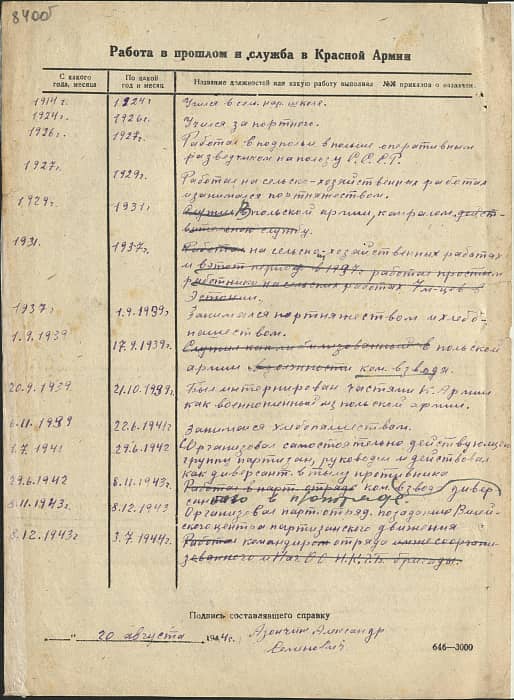 8400б
Работа в прошлом и служба в Красной Армии
С какого года, месяца
По какой год и месяц
Название должностей или какую работу выполнял №№ приказов о назначен.
1914 г. 1924 г. Учился в сел. нар. школе.
1924 г. 1926 г. Учился за портного.
1926 г. 1927 г. Работал в подпольи в польше оперативным
разведчиком на пользу С.С.С.Р.
1927 г. 1929 г. Работал на сельско-хозяйственных работах
и занимался портняжеством.
1929 г. 1931 г. Служил В польской армии, капралом действ-
вительную службу.
1931. 1937 г. Работал на сельско-хозяйственных работах
и в этот период в 1937 г. работал простым
работником на сельских работах в
Эстонии.
1937 г. 1.9.1939 г. Занимался портняжеством и хлебо-
пашеством.
1.9.1939 17.9.1939 г. Служил как мобилизованный в польской
армии в должности ком. взвода.
20.9.1939 21.10.1939 г. Был интернирован частями К. Армии
как военнопленный из польской армии.
6.11.1939 22.6.1941 г. Занимался хлебопашеством.
1.7.1941 29.6.1942 Организовал самостоятельно действующую
группу партизан, руководил и действовал
как диверсант в тылу противника
29.6.1942 8.11.1943 г. Работал в парт. отряде ком. взвод дивер
сантов в п/отряде
8.11.1943 г. 8.12.1943 Организовал парт. отряд по заданию Вилей-
ского центра партизанского движения
8.12.1943 г. 3.7.1944 г. Работал командиром отряда органи-
зованного и Нач. О.О. Н.К.В.Д. бригады.
Подпись составлявшего справку
„ 20 августа 1944 г. Азончик Александр
646—3000